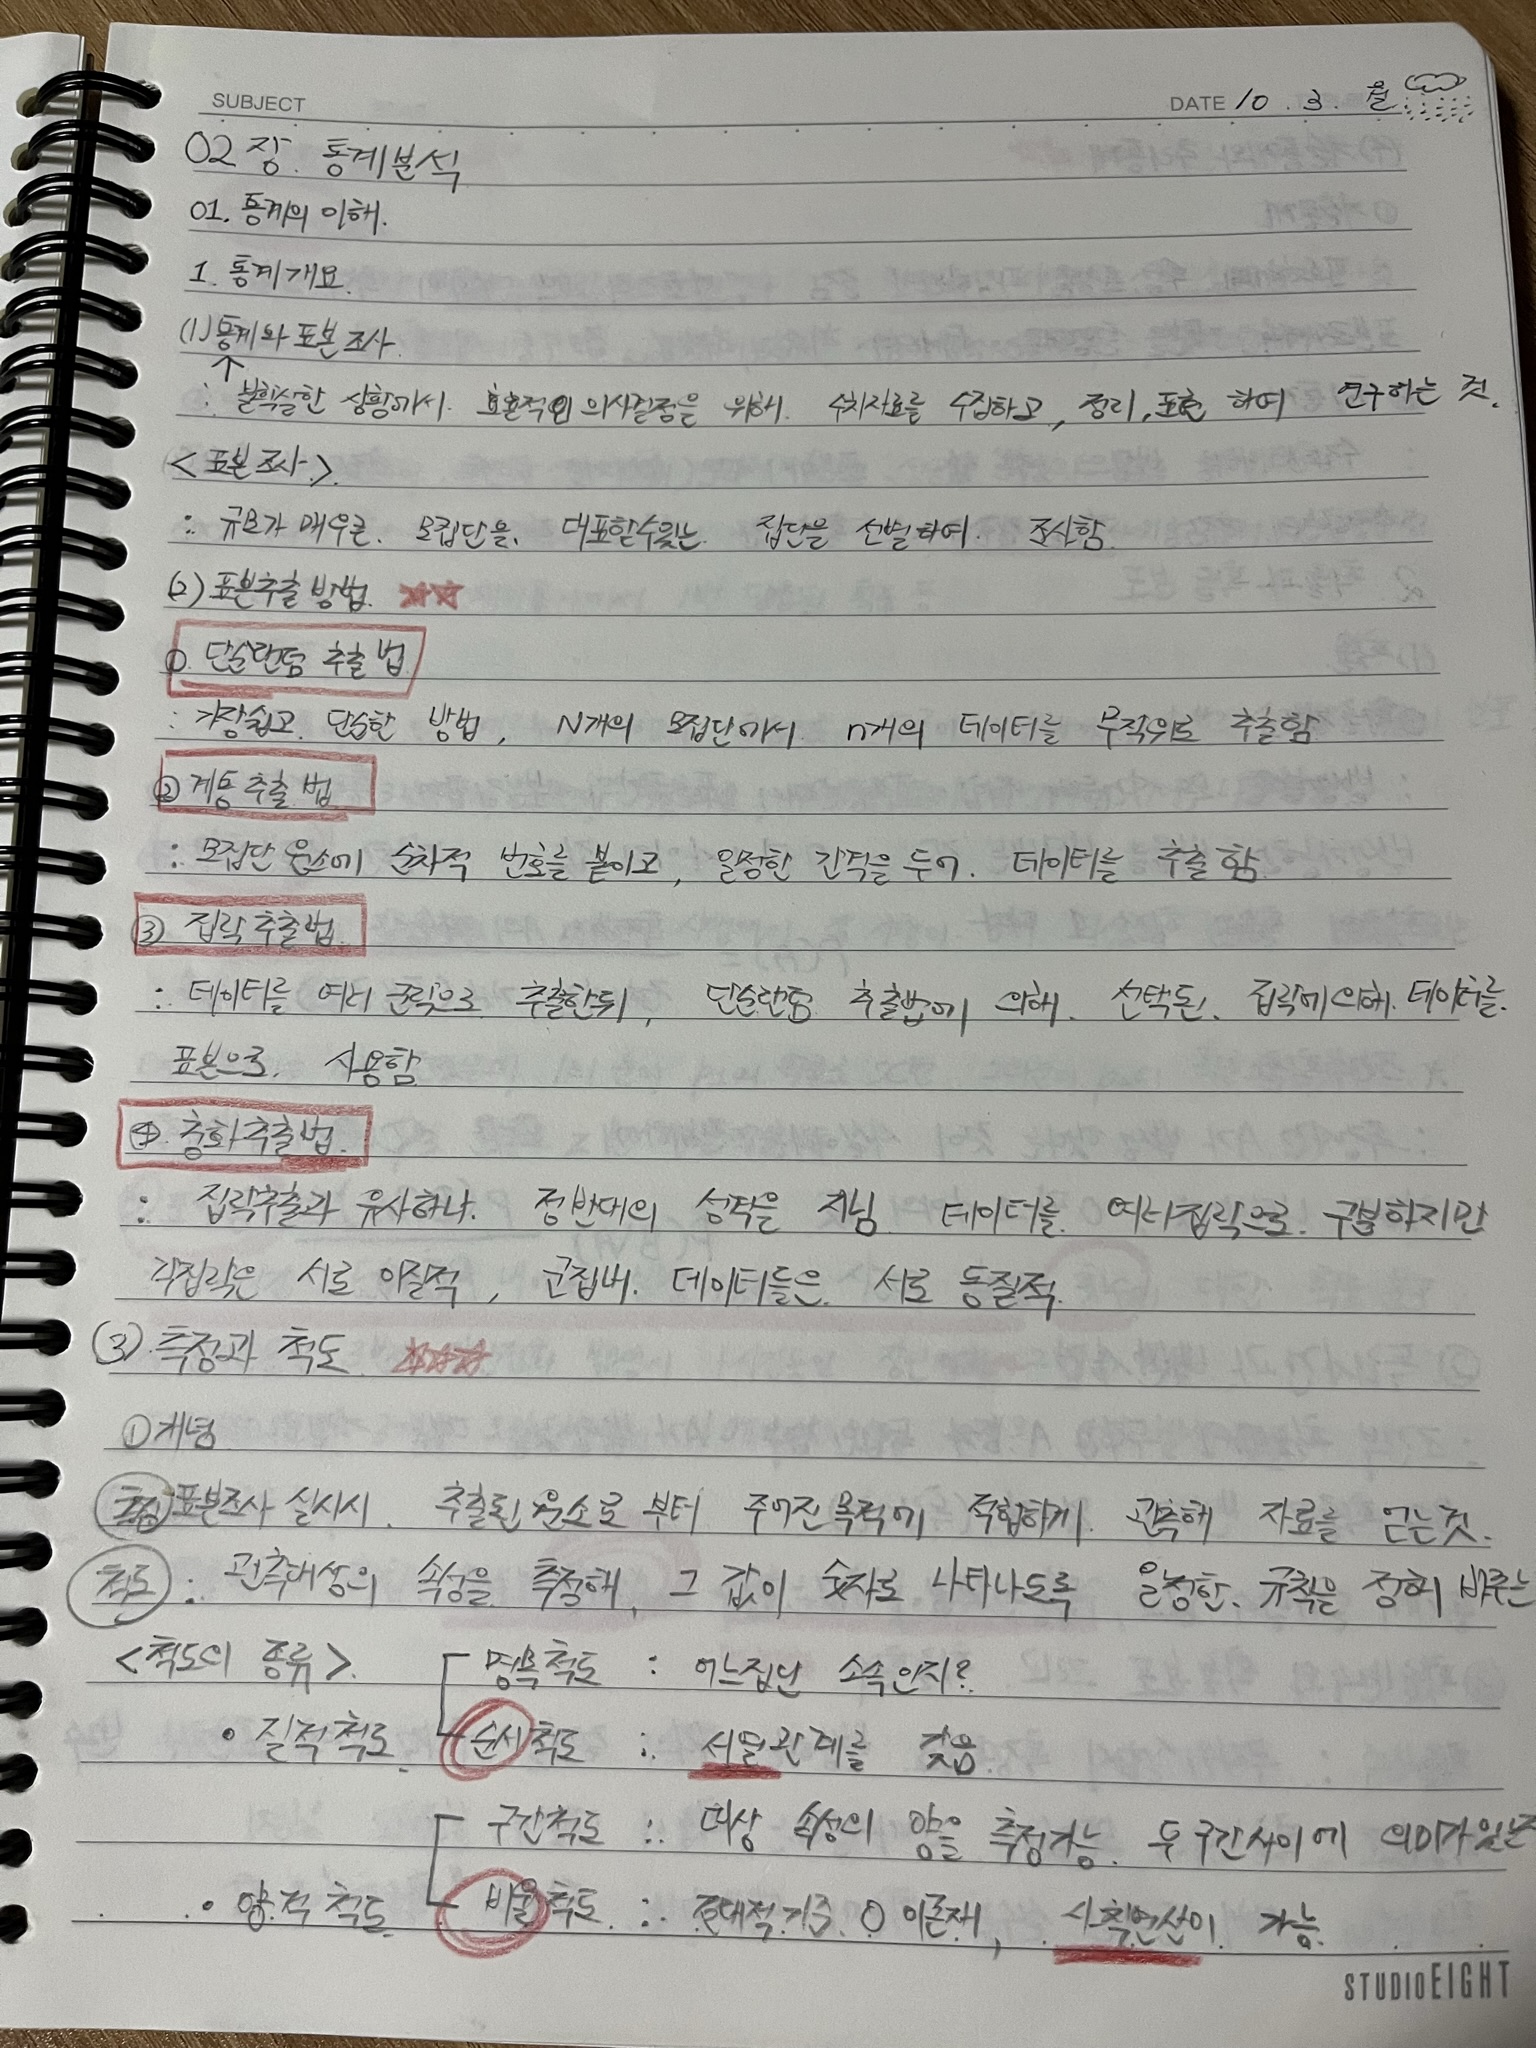 SUBJECT
DATE 10 . 3 . 월
02장. 통계분석
01. 통계의 이해.
1. 통계개요.
(1) 통계와 표본조사.
↑
: 불확실한 상황에서. 효율적인 의사결정을 위해. 수치자료를 수집하고, 정리, 표현 하여 연구하는 것.
<표본조사>.
: 규모가 매우큰. 모집단을. 대표할수있는. 집단을 선별하여. 조사함.
(2) 표본추출방법. ☆☆
①. 단순랜덤 추출법.
: 가장쉽고. 단순한 방법, N개의 모집단에서. n개의 데이터를 무작위로 추출함
② 계통추출법.
: 모집단 원소에 순차적 번호를 붙이고, 일정한 간격을 두어. 데이터를 추출함.
③ 집락추출법.
: 데이터를 여러 군락으로 추출한뒤, 단순랜덤 추출법에 의해. 선택된. 집락에의해. 데이터를.
표본으로. 사용함.
④. 층화추출법.
: 집락추출과 유사하나. 정반대의 성격을 지님. 데이터를. 여러집락으로. 구분하지만
각집락은 서로 이질적, 군집내. 데이터들은. 서로 동질적.
(3). 측정과 척도. ☆☆☆
①개념
측정 표본조사 실시시. 추출된 원소로 부터 주어진목적에 적합하게. 관측해 자료를 얻는것.
척도 : 관측대상의 속성을 측정해, 그 값이 숫자로 나타나도록 일정한. 규칙을 정해 바꾸는
<척도의 종류>. 명목척도 : 어느집단 소속인지?
• 질적척도. 순서척도 : 서열관계를 갖음.
구간척도 : 대상 속성의 양을 측정가능. 두구간사이에 의미가있는
• 양적척도 비율척도. : 절대적기준 0 이존재, 사칙연산이 가능.
STUDIOEIGHT